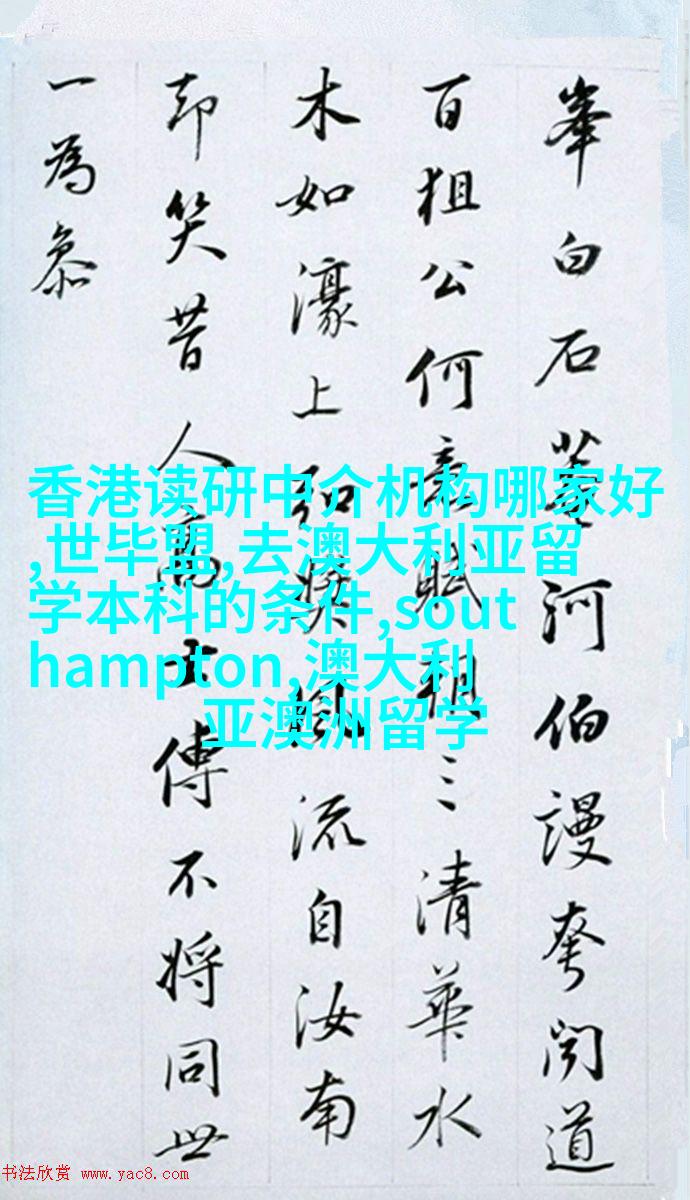 峯白石河伯謾夸聞道
百狙公何賦狙三清華水
木如濠上風流自汝南
却笑昔人高士傳不將同世
一為叅
香港读研中介机构哪家好
,世毕盟,去澳大利亚留
学本科的条件,sout
hampton,澳大利
亚澳洲留学
书法欣赏 www.yac8.com